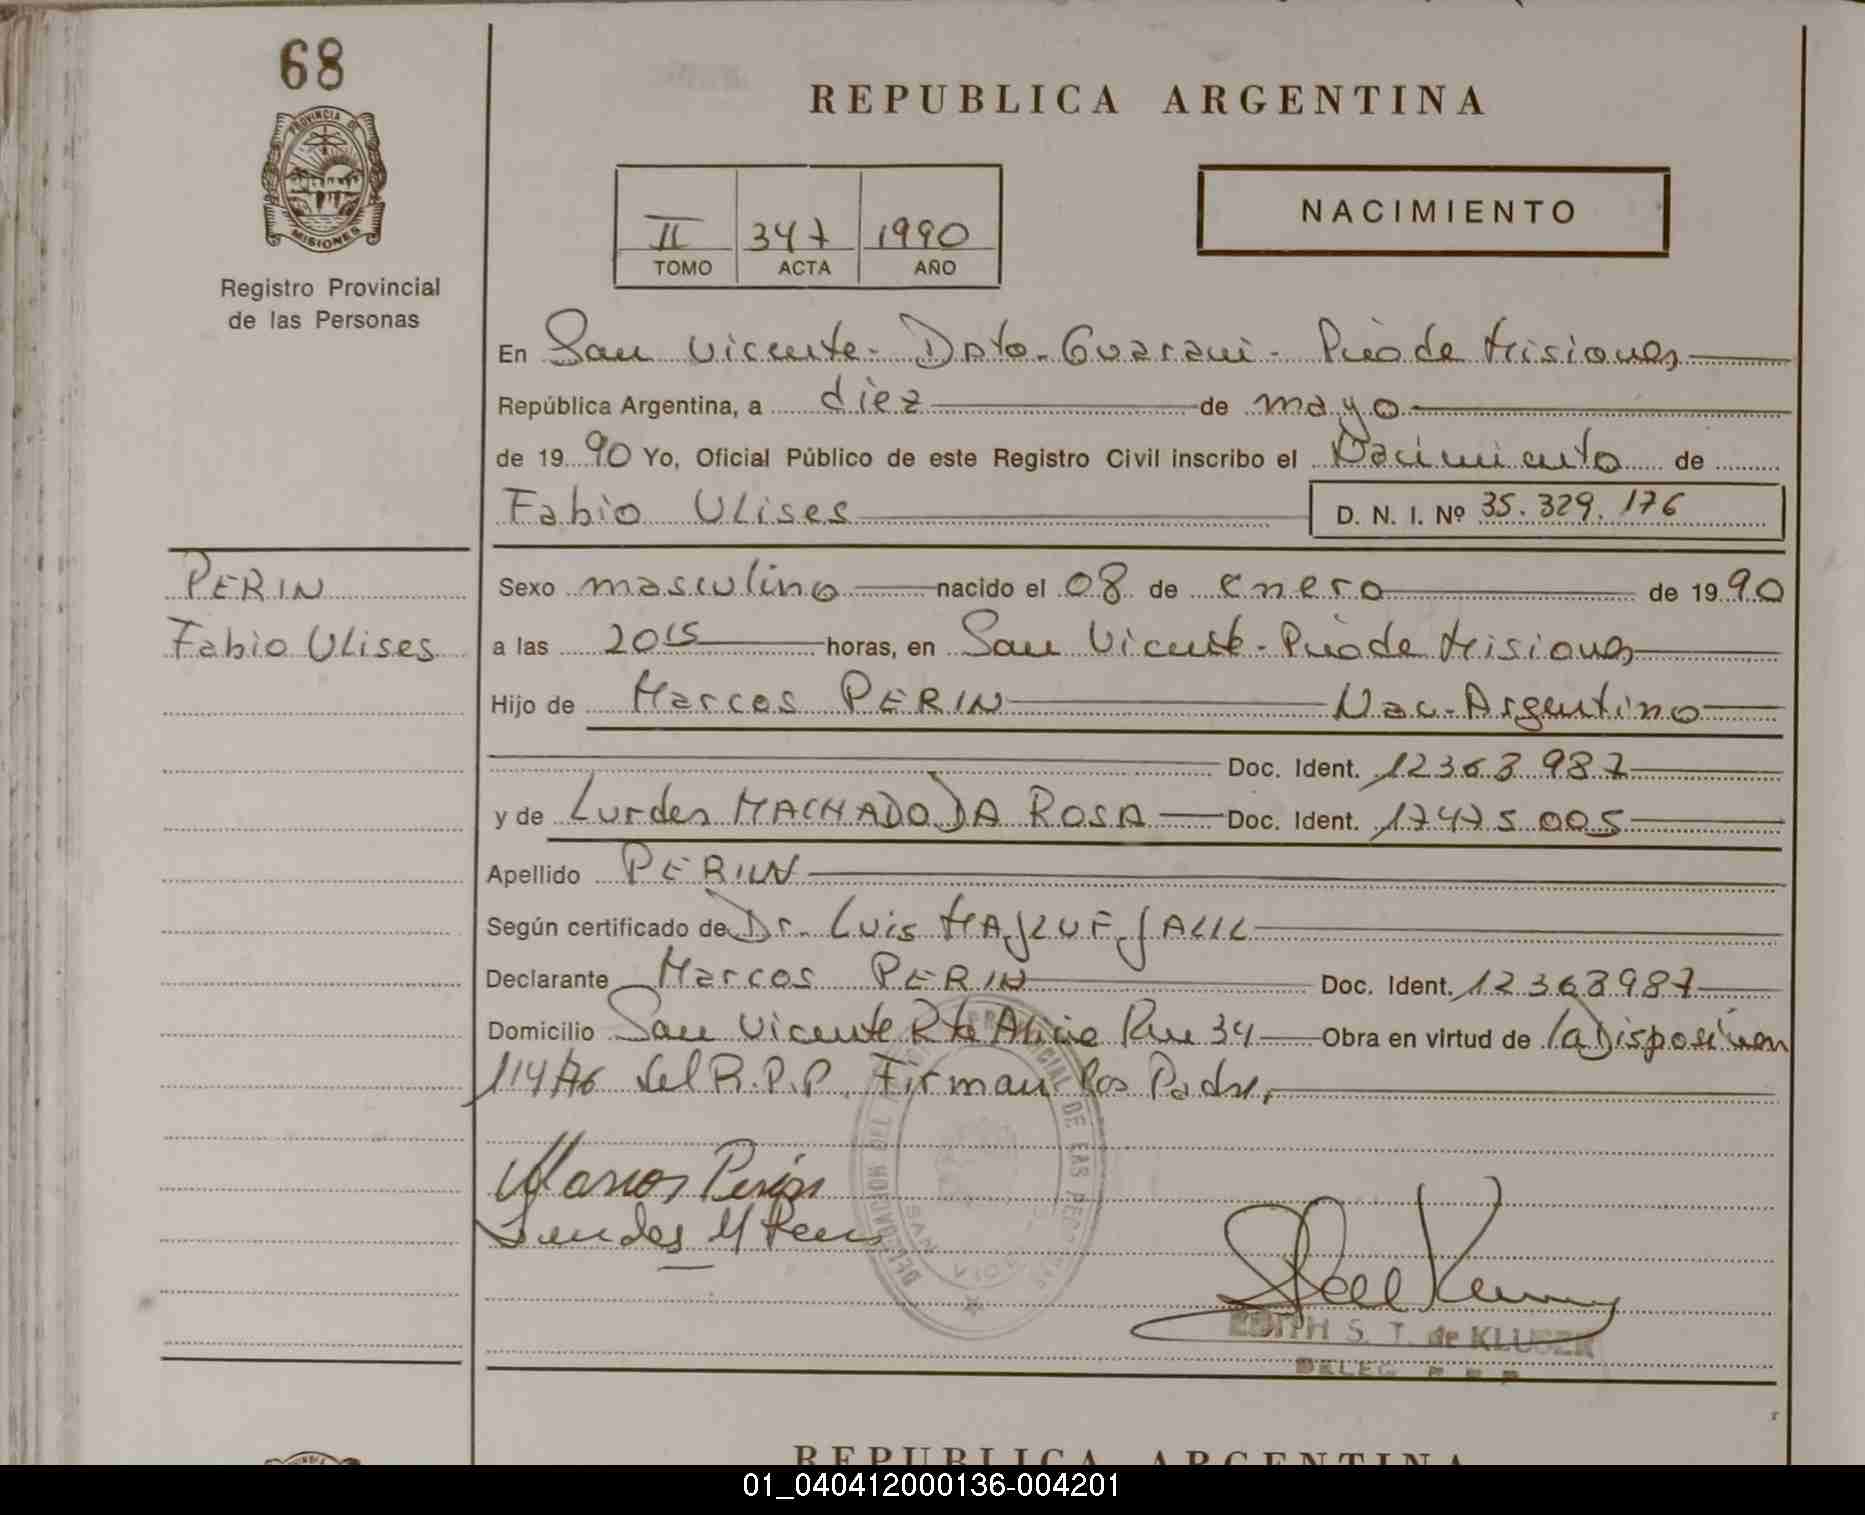 68
PROVINCIA DE
MISIONES
Registro Provincial
de las Personas
REPUBLICA ARGENTINA
II 347 1990
TOMO ACTA AÑO
NACIMIENTO
En San Vicente - Dpto - Guarani - Pciade Misiones
República Argentina, a diez de mayo
de 19 90 Yo, Oficial Público de este Registro Civil inscribo el Nacimiento de
Fabio Ulises
D. N. I. Nº 35.329.176
PERIN
Fabio Ulises
Sexo masculino nacido el 08 de enero de 19 90
a las 2015 horas, en San Vicente - Pciade Misiones
Hijo de Marcos PERIN Nac. Argentino
Doc. Ident. 12363 987
y de Lurdes MACHADO DA ROSA Doc. Ident. 17475 005
Apellido PERIN
Según certificado de Dr. Luis
Declarante Marcos PERIN Doc. Ident. 12363987
Domicilio San Vicente Rta Alicia Km 34 Obra en virtud de la Disposicion
114/76 del R.P.P. Firman los Padre,
Marcos Perin
EDITH S. T. de KLUSZR
DELEG R P P
REPUBLICA ARGENTINA
01_040412000136-004201